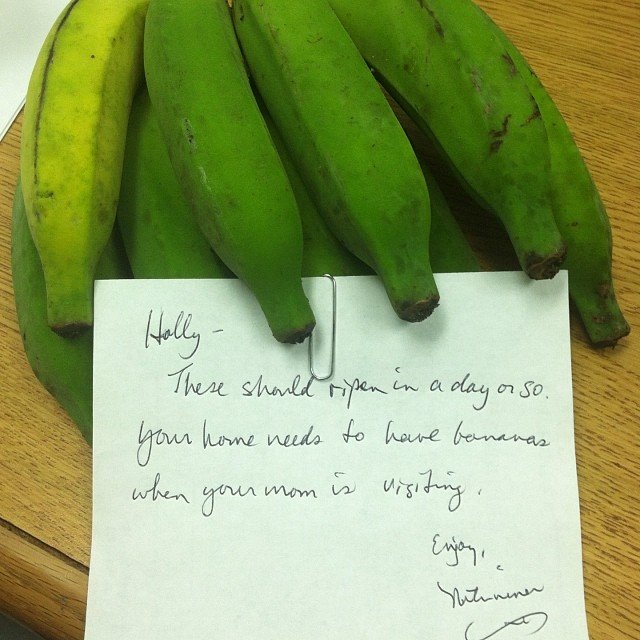 Holly -
These should ripen in a day or so.
Your home needs to have bananas
when your mom is visiting.
Enjoy,